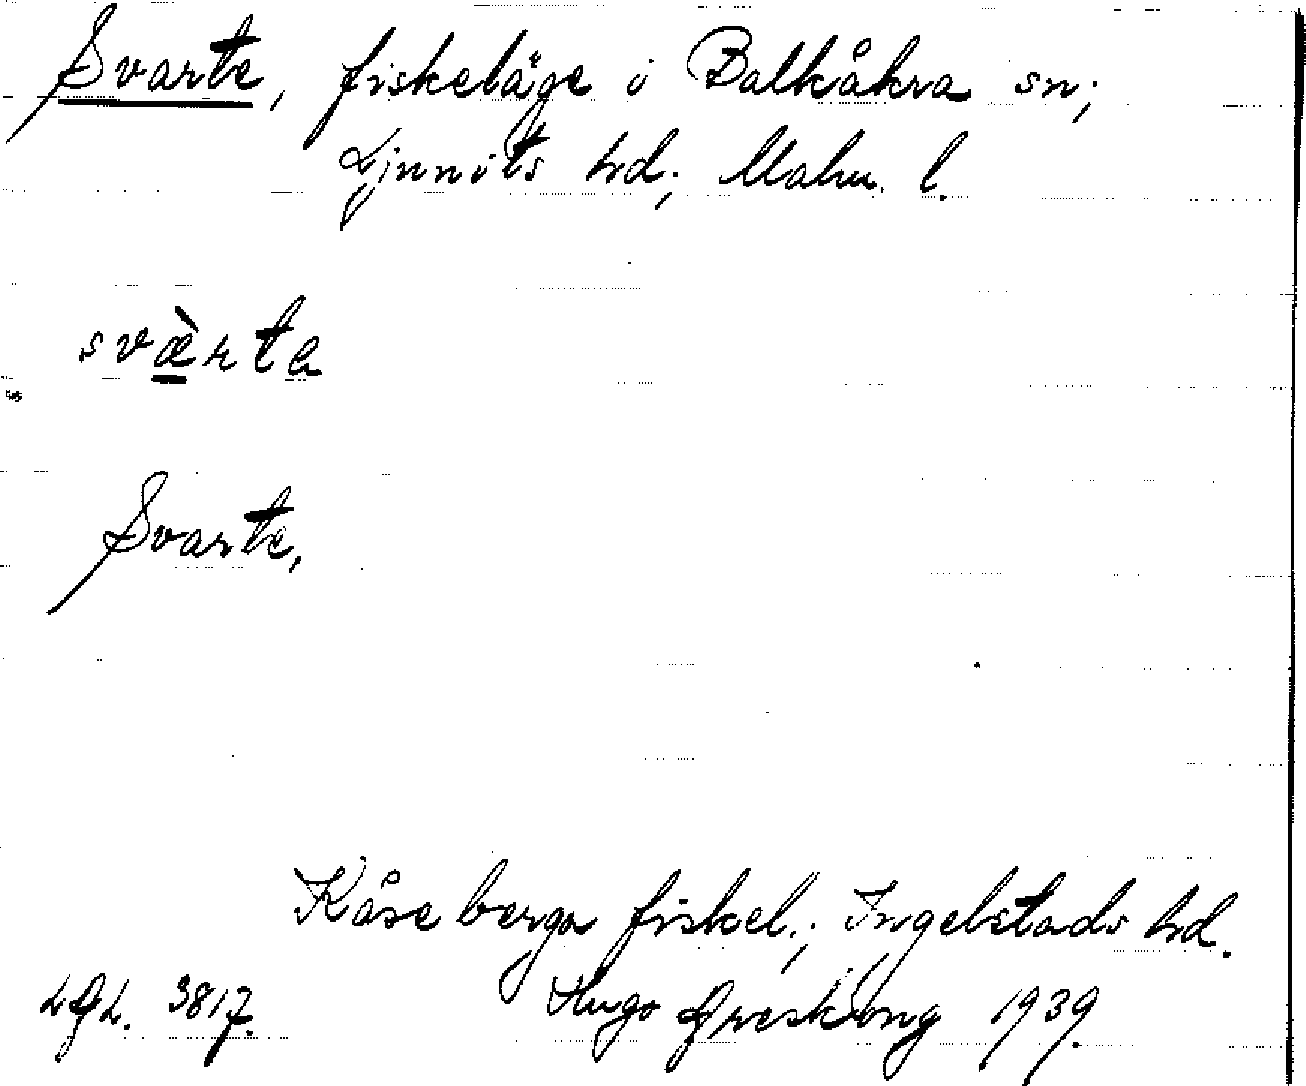 Svarte, fiskeläge i Balkåkra sn;
Ljunits hd; Malm. l.
svæ̀rta
Svarte,
Kåseberga fiskel.; Ingelstads hd.
LGL. 3817. Hugo Areskoug 1939.